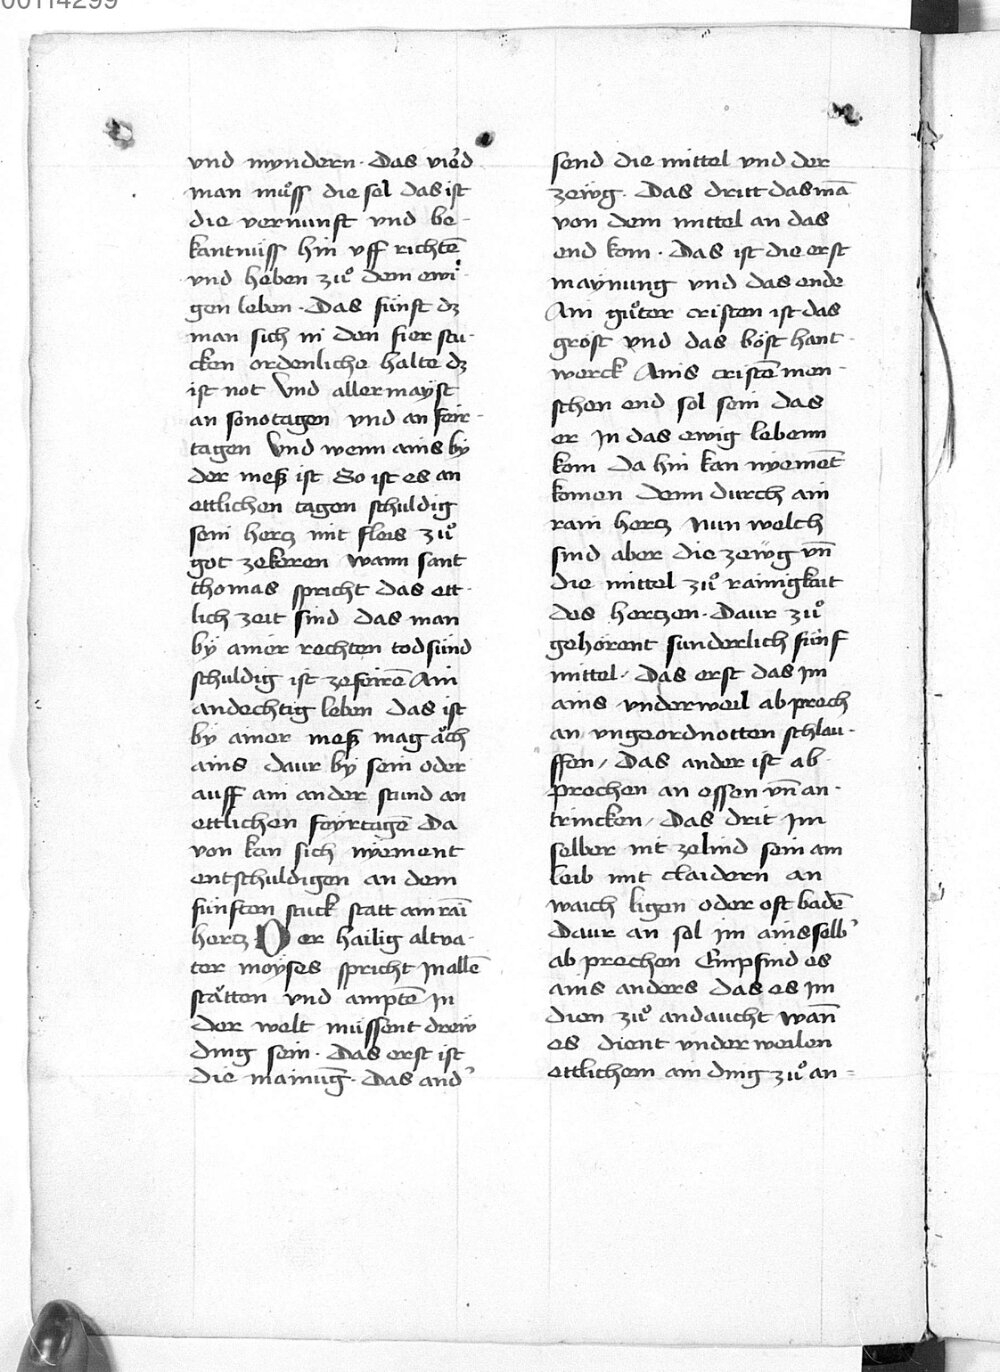 00114299
vnd myndern · Das vierd
man muͦss die sel das ist
die vernunft vnd be-
kantnuss hin vff richtē
vnd heben zuͦ dem ewi-
gen leben · Das fünft dz
man sich in den fier stu-
cken ordenliche halte dz
ist not Vnd allermayst
an sonotagen vnd an feir-
tagen Vnd wenn ains by
der meß ist So ist es an
ettlichen tagen schuldig
sein hertz mit fleis zuͦ
got zekeren wann sant
thomas spricht das ett-
lich zeit sind das man
by ainer rechten todsünd
schuldig ist zefeirē Ain
andechtig leben das ist
by ainer meß mag aͮch
ains daur by sein oder
auff ain ander stund an
ettlichen feyrtagē Da
von kan sich nyement
entschuldigen an dem
fünften stuck statt ain rai
hertz Der hailig altva-
ter moyses spricht In allē
stätten vnd amptē In
der welt müssent dreẅ
ding sein · Das erst ist
die mainūg · Das and'
send die mittel vnd der
zeẅg · Das dritt das mā
von dem mittel an das
end kom · Das ist die erst
maynung vnd das ende
Ain guͦter cristen ist das
gröst vnd das böst hant-
werck Ains cristē men-
schen end sol sein das
er In das ewig lebenn
kom Da hin kan nyemēt
komen denn durch ain
rain hertz Nun welch
sind aber die zeẅg vn̄
die mittel zuͦ rainigkait
des hertzen · Daur zuͦ
gehörent sunderlich fünf
mittel / Das erst das Im
ains vnderweil ab prech
an vngeordnotten schlau-
ffen / Das ander ist ab
prechen an essen vn̄ an-
trincken / Das drit Im
selber nit zelind sein am
leib mit claidern an
waich ligen oder oft badē
Daur an sol im ains selb'
ab prechen Empfind es
ains anders das es Im
dien zuͦ andaucht wan̄
es dient vnder weilen
ettlichem ain ding zuͦ an-